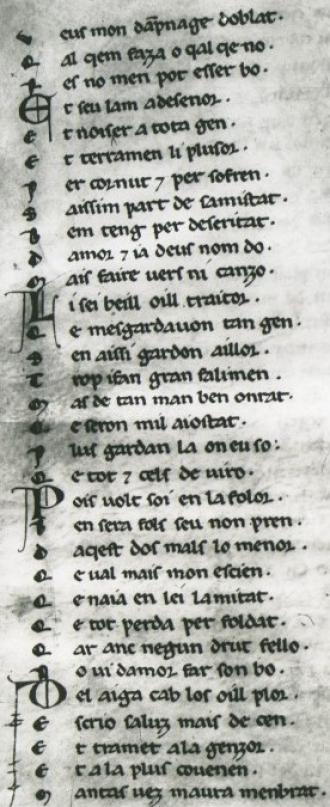 veus mon dāpnage doblat.
Qal qem faza o qal qe no.
Res no men pot esser bo.
Et seu lam adesenor.
Et noiser a tota gen.
Et terramen li plusor.
Per cornut ⁊ per sofren.
Saissim part de samistat.
Bem teng per deseritat.
Damor ⁊ ia deus nom do.
Mais faire uers ni canzo.
Li sei beill oill traitor.
Qe mesgardauon tan gen.
Sen aissi gardon aillor.
Trop ifan gran falimen.
Mas de tan man ben onrat.
Qe seron mil aiostat.
Plus gardan la on eu so:
Qe tot ⁊ cels de uiro.
Pois uolt soi en la folor.
Ben sera fols seu non pren.
Daqest dos mals lo menor.
Qe ual mais mon escien.
Qe naia en lei lamitat.
Qe tot perda per foldat.
Qar anc negun drut fello.
No ui damor far son bo.
Del aiga cab los oill plor.
Escrio saluz mais de cen.
Et tramet ala genzor.
Et ala plus couenen.
Mantas uez maura menbrat.